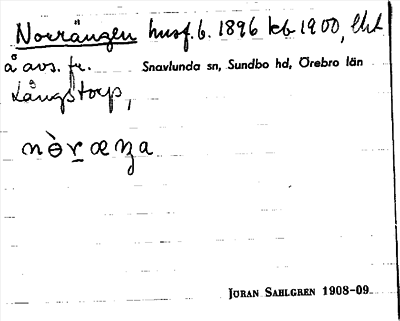 Norrängen husf. b. 1896 kb 1900, lht
å avs. fr. Snavlunda sn, Sundbo hd, Örebro län
Långstorp,
nɵ̀r̲æŋa
JÖRAN SAHLGREN 1908-09